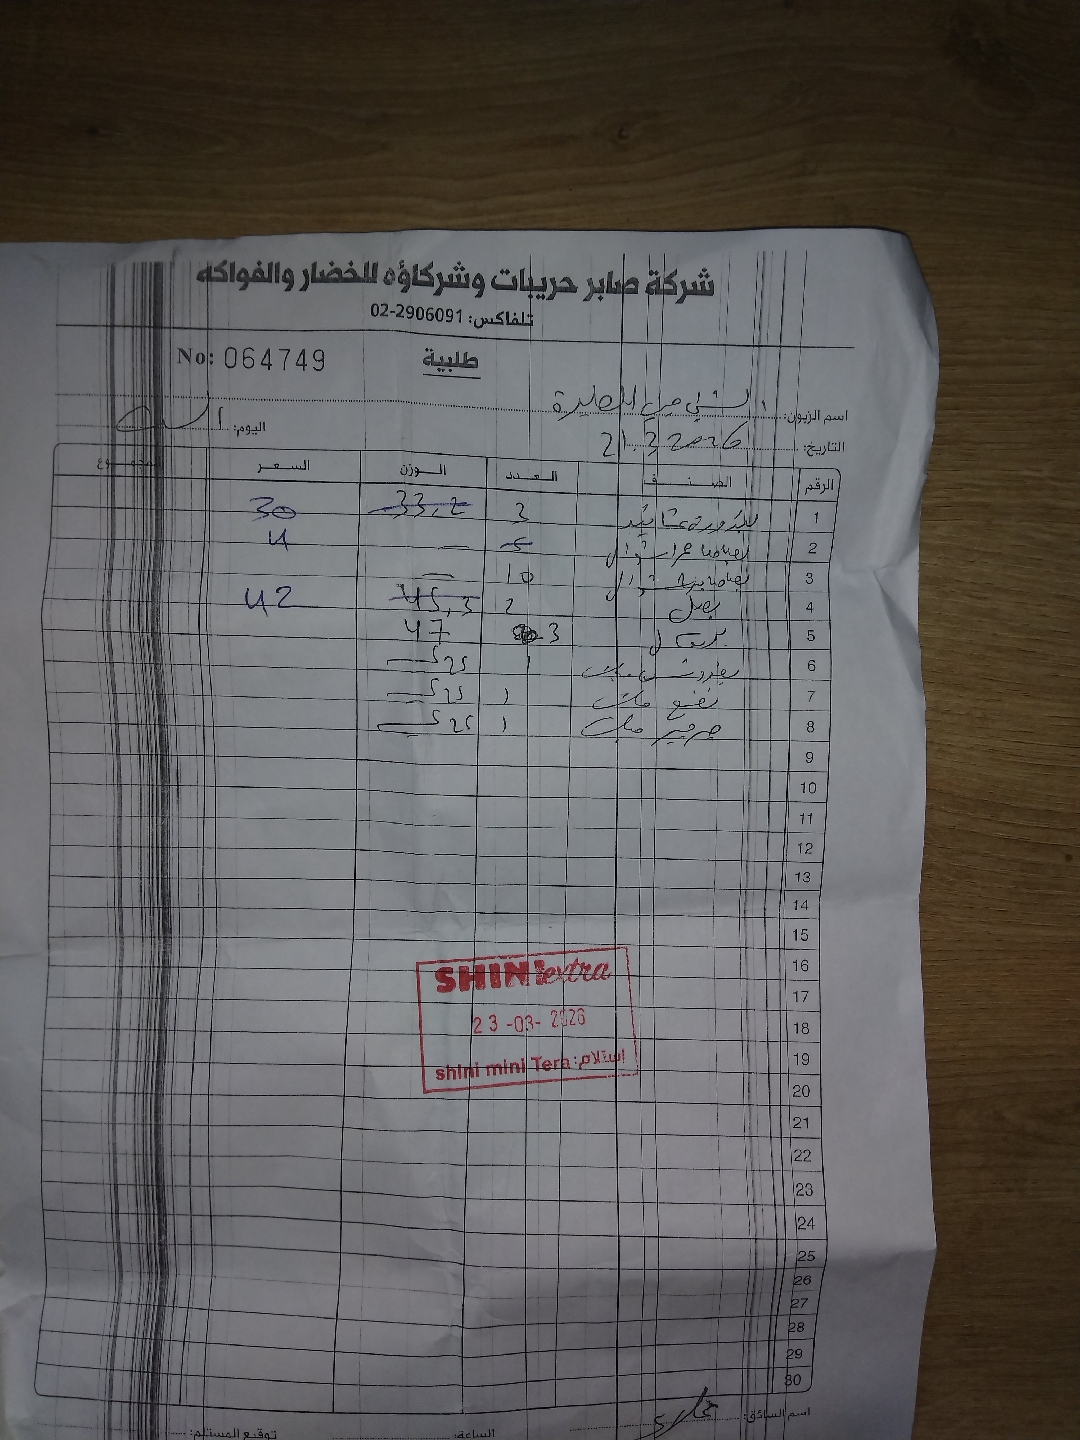 شركة صابر حريبات وشركاؤه للخضار والفواكه
تلفاكس: 02-2906091
طلبية
No: 064749
اسم الزبون:
اليوم: السبت
التاريخ: 21.3.2026
الرقم الصنف العدد الوزن السعر المجموع
1 بندورة 3 33,2 30
2 5 — 4
3 10 —
4 بصل 2 45,5 42
5 3 47
6 1 525
7 نعنع 1 525
8 جرجير 1 525
9
10
11
12
13
14
15
16
17
18
19
20
21
22
23
24
25
26
27
28
29
30
SHINI extra
23-03-2026
shini mini Tera :استلام
اسم السائق:
الساعة:
توقيع المستلم: